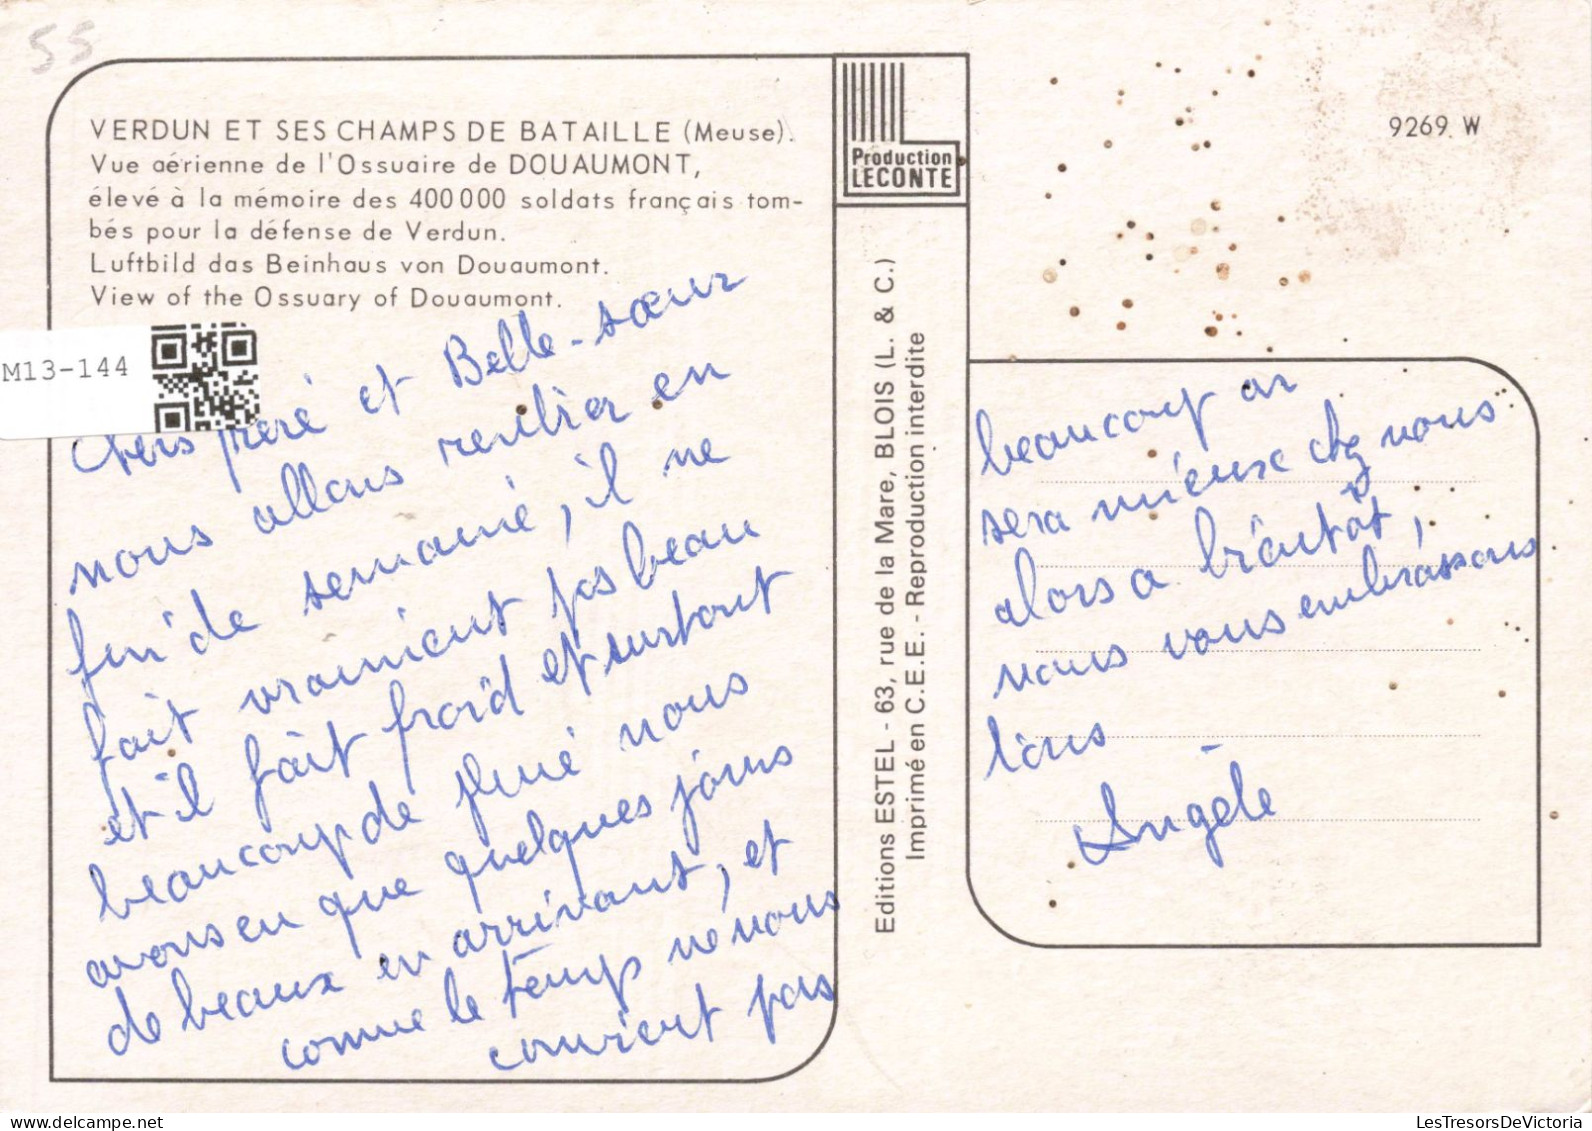 55
VERDUN ET SES CHAMPS DE BATAILLE (Meuse).
Vue aérienne de l'Ossuaire de DOUAUMONT,
élevé à la mémoire des 400 000 soldats français tom-
bés pour la défense de Verdun.
Luftbild das Beinhaus von Douaumont.
View of the Ossuary of Douaumont.
M13-144
Chers frere et Belle-sœur
nous allons rentrer en
fin de semaine, il ne
fait vraiment pas beau
et il fait froid et surtout
beaucoup de pluie nous
avons eu que quelques jours
de beaux en arrivant, et
comme le temps ne nous
convient pas
Production
LECONTE
Editions ESTEL - 63, rue de la Mare, BLOIS (L. & C.)
Imprimé en C.E.E. - Reproduction interdite
9269 W
beaucoup on
sera mieux chez nous
alors a bientôt,
nous vous embrassons
tous
Angèle
LesTresorsDeVictoria